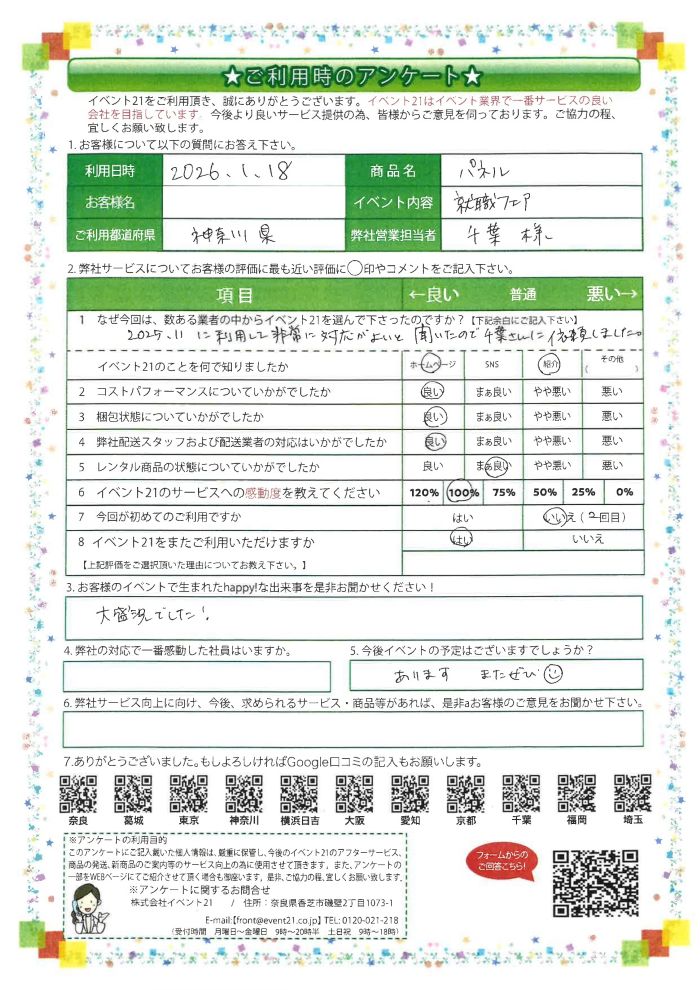 ★ご利用時のアンケート★
イベント21をご利用頂き、誠にありがとうございます。イベント21はイベント業界で一番サービスの良い
会社を目指しています。今後より良いサービス提供の為、皆様からご意見を伺っております。ご協力の程、
宜しくお願い致します。
1.お客様について以下の質問にお答え下さい。
利用日時 2026.1.18 商品名 パネル
お客様名 イベント内容 就職フェア
ご利用都道府県 神奈川県 弊社営業担当者 千葉様
2.弊社サービスについてお客様の評価に最も近い評価に◯印やコメントをご記入下さい。
項目 ←良い 普通 悪い→
1 なぜ今回は、数ある業者の中からイベント21を選んで下さったのですか?【下記余白にご記入下さい】
2025.11に利用して非常に対応がよいと聞いたので千葉さんに依頼しました。
イベント21のことを何で知りましたか ホームページ SNS 紹介 その他( )
2 コストパフォーマンスについていかがでしたか 良い まぁ良い やや悪い 悪い
3 梱包状態についていかがでしたか 良い まぁ良い やや悪い 悪い
4 弊社配送スタッフおよび配送業者の対応はいかがでしたか 良い まぁ良い やや悪い 悪い
5 レンタル商品の状態についていかがでしたか 良い まぁ良い やや悪い 悪い
6 イベント21のサービスへの感動度を教えてください 120% 100% 75% 50% 25% 0%
7 今回が初めてのご利用ですか はい いいえ(2回目)
8 イベント21をまたご利用いただけますか はい いいえ
【上記評価をご選択頂いた理由についてお教え下さい。】
3.お客様のイベントで生まれたhappy!な出来事を是非お聞かせください!
大盛況でした!
4.弊社の対応で一番感動した社員はいますか。
5.今後イベントの予定はございますでしょうか?
あります またぜひ
6.弊社サービス向上に向け、今後、求められるサービス・商品等があれば、是非aお客様のご意見をお聞かせ下さい。
7.ありがとうございました。もしよろしければGoogle口コミの記入もお願いします。
奈良 葛城 東京 神奈川 横浜日吉 大阪 愛知 京都 千葉 福岡 埼玉
※アンケートの利用目的
このアンケートにご記入戴いた個人情報は、厳重に保管し、今後のイベント21のアフターサービス、
商品の発送、新商品のご案内等のサービス向上の為に使用させて頂きます。また、アンケートの
一部をWEBページにてご紹介させて頂く場合も御座います。是非、ご協力の程、宜しくお願い致します。
※アンケートに関するお問合せ
株式会社イベント21 / 住所:奈良県香芝市磯壁2丁目1073-1
E-mail:【front@event21.co.jp】 TEL: 0120-021-218
(受付時間 月曜日~金曜日 9時~20時半 土日祝 9時~18時)
フォームからの
ご回答こちら!